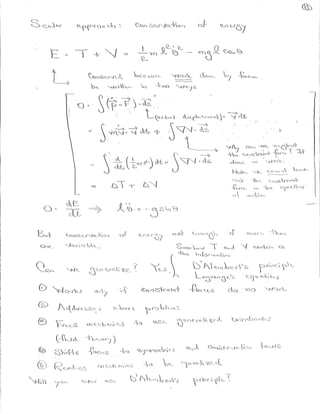 Scalar approach: conservation of energy
E = T + V = 1/2 m l² θ̇² - mgl cosθ
Conserved because work done by forces
be written in two ways
0 = ∫(ṗ - F)·ds
(actual displacement) = v dt
= ∫ m v̇·v dt + ∫ ∇V·ds
Why can we neglect
the constraint force? It
does no work.
= ∫ d/dt (1/2 m v²) dt + ∫ ∇V·ds
Note we cannot
the constraint
force in the equation
of motion
= ΔT + ΔV
0 = dE/dt ⇒ l θ̈ = -g sinθ
But conservation of energy not enough if more than
one variable.
Somehow T and V contain
the information
Can we generalize? Yes, D'Alembert's principle
Lagrange's equations
① Works only if constraint forces do no work
② Addresses above problems
③ Frees mechanics to use generalized coordinates
(field theory)
④ Shifts focus to symmetries and conservation laws
⑤ Readies mechanics to be quantized
Will you ever use D'Alembert's principle?